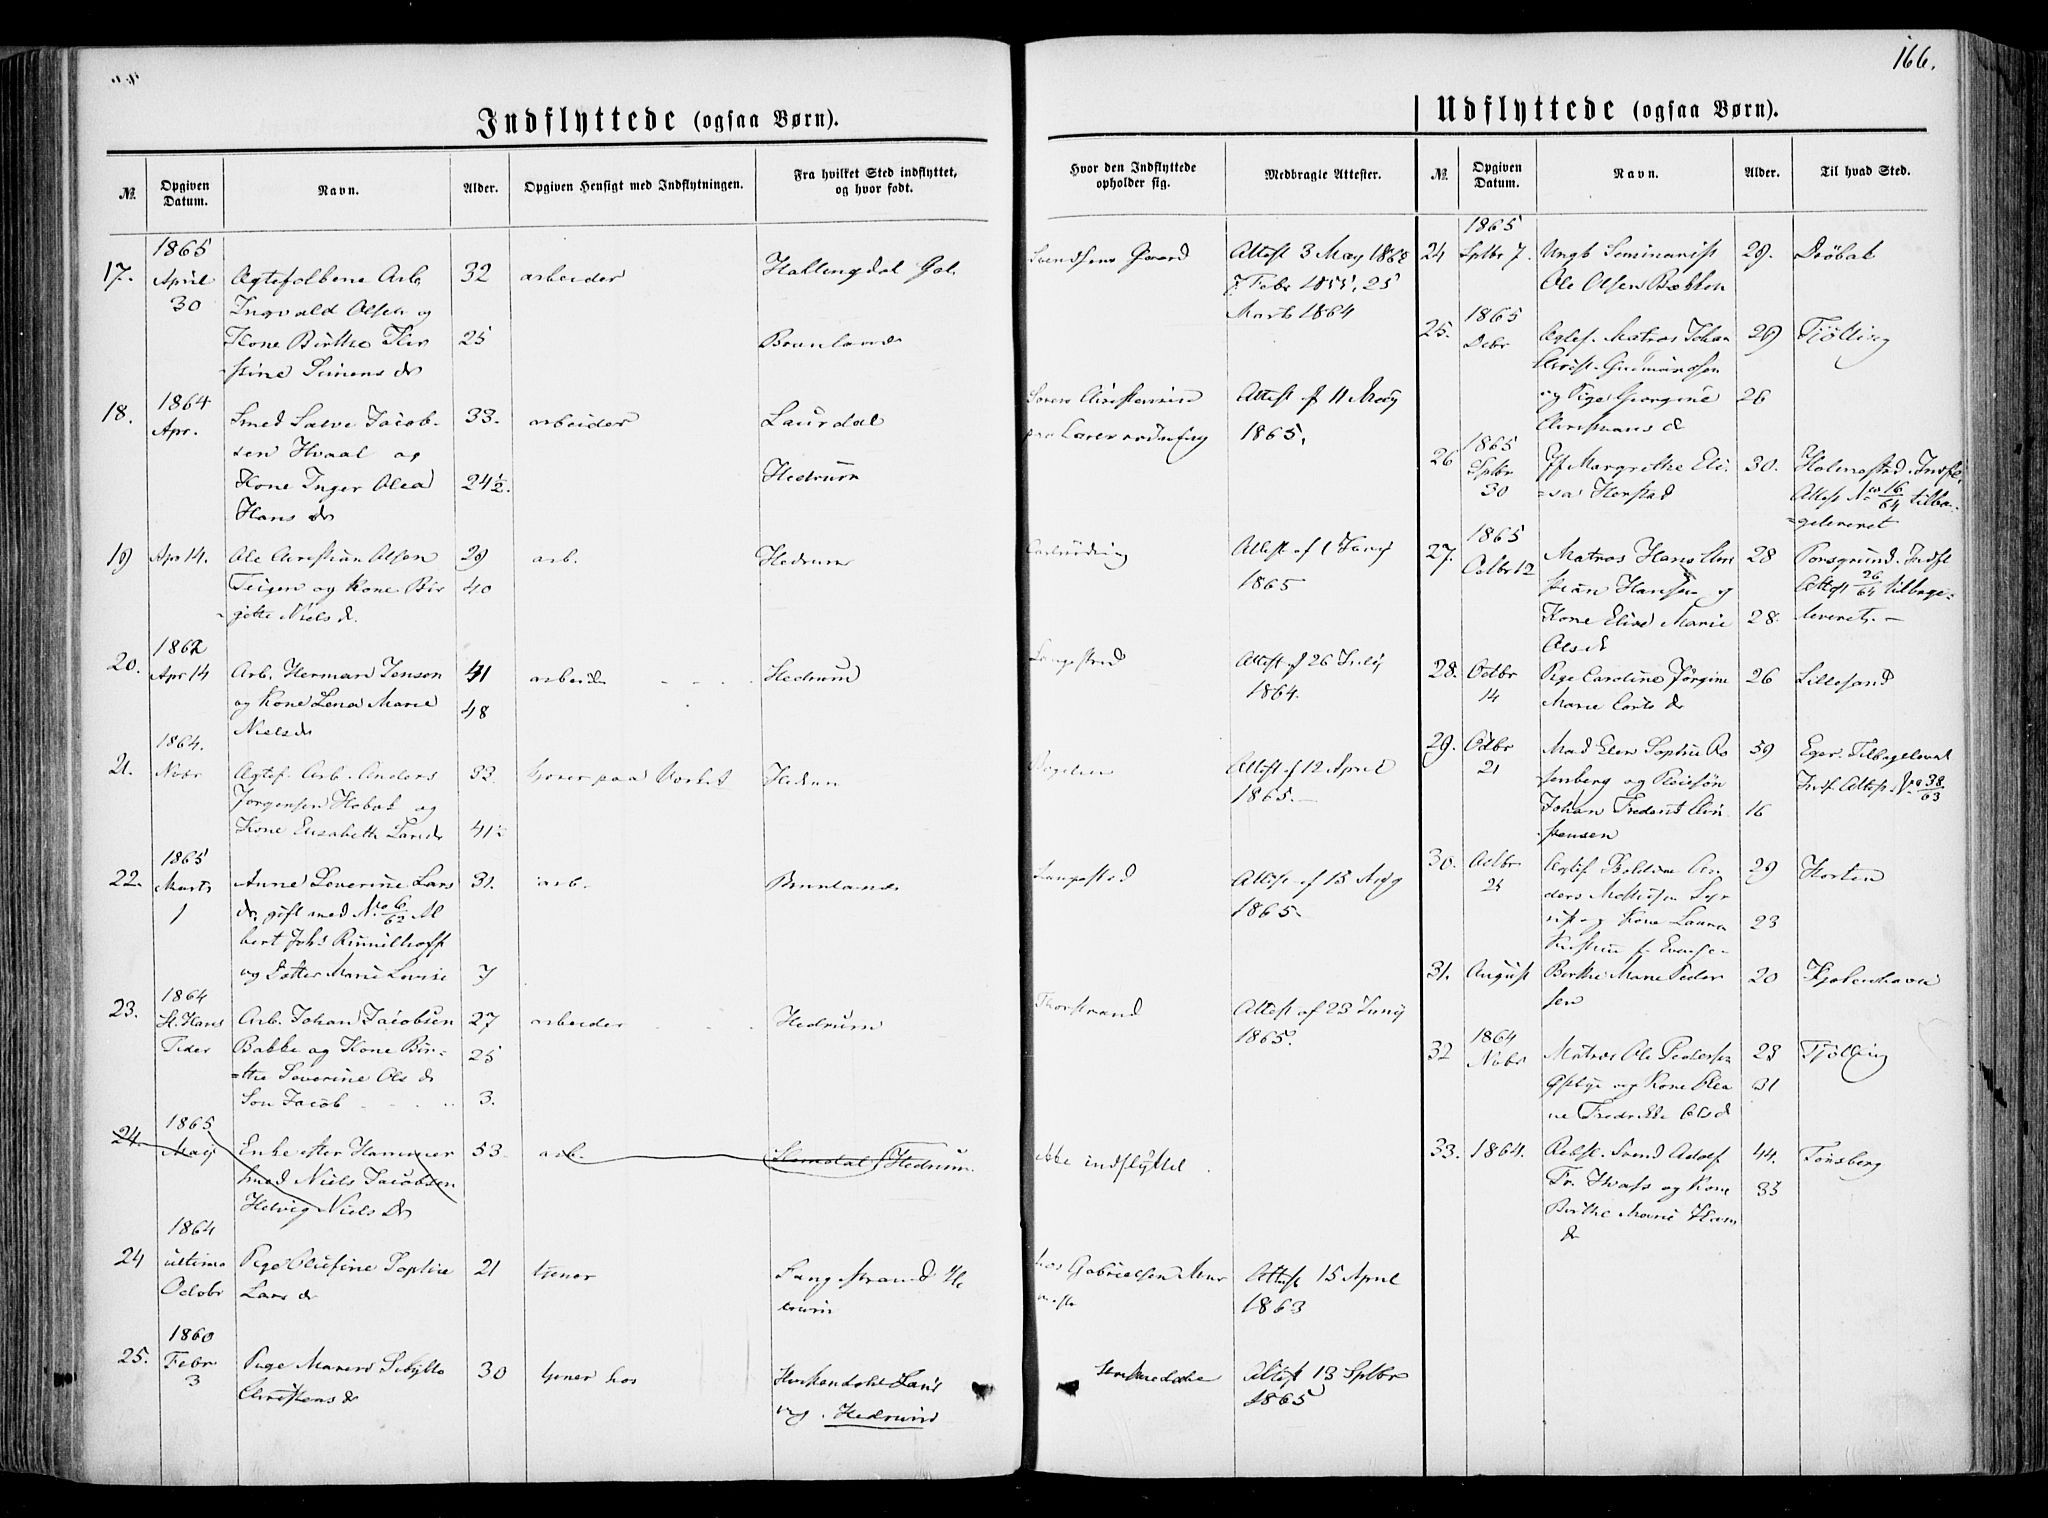 166.
Indflyttede (ogsaa Børn).
№
Opgiven Datum.
Navn.
Alder.
Opgiven Hensigt med Indflytningen.
Fra hvilket Sted indflyttet, og hvor født.
Hvor den Indflyttede opholder sig.
Medbragte Attester.
17. 1865 April 30
Ægtefolkene Arb. 32 arbeider Hallingdal Gol. Svendsens Gaard Attest 3 May 1862
Ingvald Olsen og 7 Febr 1855, 25
Kone Birthe Kir 25 Brunlanæs Marts 1864
stine Simens dr
18. 1864 Apr.
Smed Salve Jacob- 33. arbeider Laurdal Attest af 11 May
sen Hvaal og 1865.
Kone Inger Olea 24½. Hedrum
Hans dr
19 Apr 14. Ole Christian Olsen 29 arb. Hedrum Attest af 1 Juny
Teigen og Kone Bir 40 1865
gitte Niels dr.
20. 1862 Apr 14
Arb. Herman Jenson 41 arbeider Hedrum Langestrand Attest af 26 July
og Kone Lena Marie 48 1864.
Niels dr
21. 1864. Novr
Ægtef. Arb. Anders 33. tjener paa Værket Hedrum Attest af 12 April
Jørgensen Hobæk og 1865.
Kone Elisabeth Lars dr 41½
22. 1865 Marts 1
Anne Severine Lars 31. arb. Brunlanæs Langestrand Attest af 13 May
dr. gift med No 6/62 Al 1865.
bert Johs
og Datter Marie Lovise 7
23. 1864 St. Hans Tider
Arb. Johan Jacobsen 27 arbeider Hedrum Thorstrand Attest af 23 Juny
Bakke og Kone Bir- 25 1865.
the Severine Ols dr
Søn Jacob 3.
24. 1865 May
Enke efter Hammer 53. arb. Hedrum ikke indflyttet.
smed Niels Jacobsen
Helvig Niels Dr
24 1864 ultimo Octobr
Pige Olufine Sophie 21 tjener Langestrand He hos Gabrielsen Mur Attest 15 April
Lars dr drum mester 1863
25. 1860 Febr 3
Pige Maren Sibylle 30 tjener hos Attest 13 Sptbr
Christens dr Hedrum 1865
Udflyttede (ogsaa Børn).
№
Opgiven Datum.
Navn.
Alder.
Til hvad Sted.
24 1865 Sptbr 7. Ungk Seminarist 29. Drøbak
Ole Olsen Bækken
25. 1865 Decbr
Ægtef. Matros Johan 29 Tjølling
Christ. Gudmundsen
og Pige Georgine 26
Christians dr
26 1865 Sptbr 30
Jf Margrethe Eli- 30. Holmestrad. Indfl.
sa Herstad Attest No 16/64 tilba-
geleveret
27. 1865 Octbr 12
Matros Hans Chri 28 Porsgrund. Indfl
stian Hansen og Attest 26/64 tilbage-
Kone Elise Marie 28. leveret. —
Ols dr
28. Octbr 14
Pige Caroline Jørgine 26 Lillesand
Marie Carls dr
29. Octbr 21
Mad Elen Sophie Ro 59 Eger. Tilbageleveret
senberg og Pleiesøn Indf. Attest No 38/63
Johan Frederik Chri 16
stensen
30. Octbr 25
29 Horten
23
31. August Birthe Marie Peder 20 Kjøbenhavn
sen
32 1864 Novbr
Matros Ole Pedersen 23 Tjølling
Østbye og Kone Elea 31
ne Fredrikke Ols dr
33. 1864. Svend Adolf 44. Tønsberg
Fr. Hvass og Kone 33
Birthe Marie Ham
dr